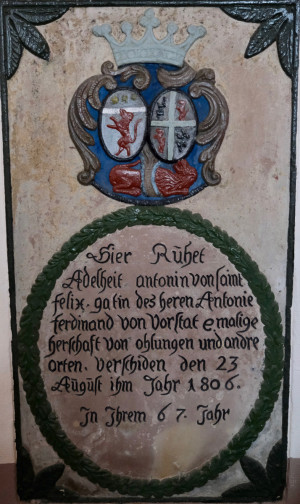 Hier Rühet
Adelheit antonin von saint
felix. gatin des heren Antonie
ferdinand von Vorstat emalige
herschaft von ohlungen und andre
orten. verschiden den 23
August ihm Jahr 1806.
In Ihrem 67. Jahr